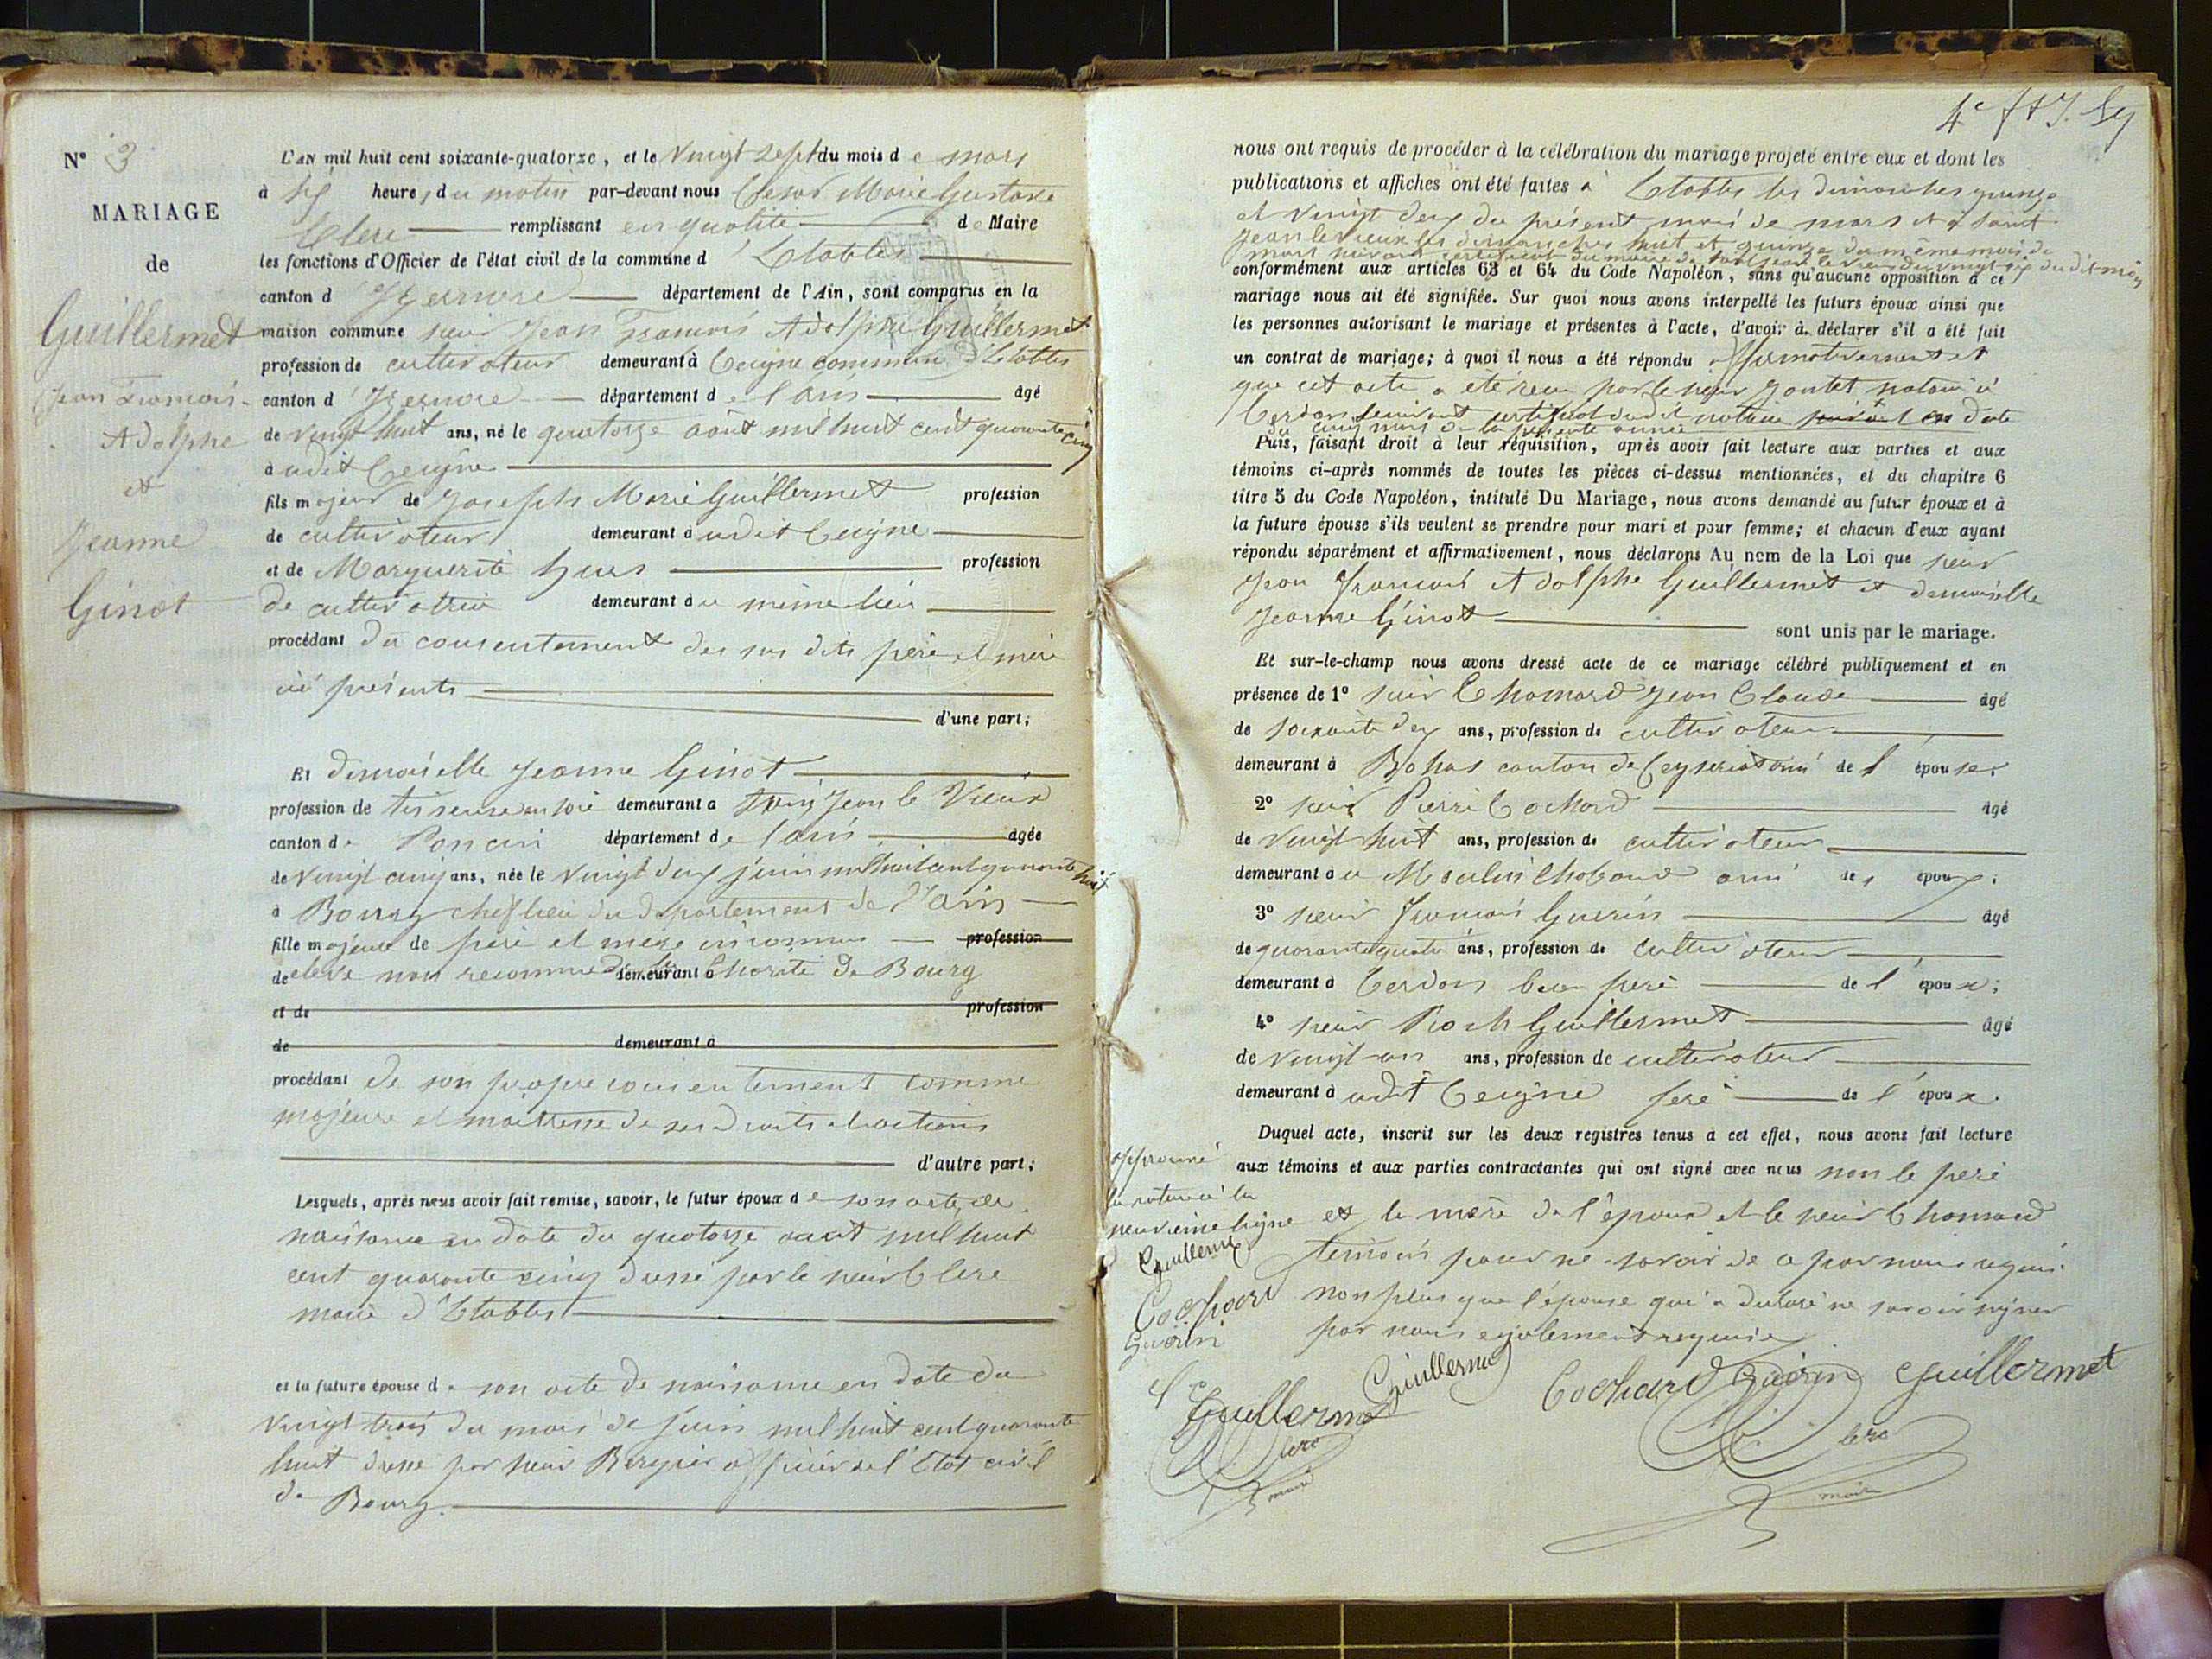 N° 3
MARIAGE
de
Guillermet
Jean François
Adolphe
et
Jeanne
Ginot
L'AN mil huit cent soixante-quatorze, et le Vingt sept du mois de mars
à six heures du matin par-devant nous César Marie Gustave
Clerc remplissant en qualité de Maire
les fonctions d'Officier de l'état civil de la commune d'Etables
canton d'Izernore département de l'Ain, sont comparus en la
maison commune sieur Jean François Adolphe Guillermet
profession de cultivateur demeurant à Ceigne commune d'Etables
canton d'Izernore département de l'ain âgé
de vingt huit ans, né le quatorze août mil huit cent quarante cinq
à udit Ceigne
fils majeur de Joseph Marie Guillermet profession
de cultivateur demeurant à udit Ceigne
et de Marguerite profession
de cultivatrice demeurant à u même lieu
procédant du consentement des sus dits père et mère
ici présents
d'une part;
Et demoiselle Jeanne Ginot
profession de tisseuse en soie demeurant à Saint Jean le Vieux
canton de Poncin département de l'ain âgée
de vingt cinq ans, née le vingt deux juin mil huit cent quarante huit
à Bourg chef lieu du département de l'ain
fille majeure de père et mère inconnus profession
de élève non reconnue de la demeurant à charité de Bourg
et de profession
de demeurant à
procédant de son propre consentement comme
majeure et maîtresse de ses droits et actions
d'autre part;
Lesquels, après nous avoir fait remise, savoir, le futur époux de son acte de
naissance en date du quatorze août mil huit
cent quarante cinq dressé par le sieur Clerc
maire d'Etables
et la future épouse de son acte de naissance en date du
vingt trois du mois de juin mil huit cent quarante
huit dressé par sieur Bergier officier de l'état civil
de Bourg.
4e
nous ont requis de procéder à la célébration du mariage projeté entre eux et dont les
publications et affiches ont été faites à Etables les dimanches quinze
et vingt deux du présent mois de mars et à Saint
Jean le vieux les dimanches huit et quinze du même mois de
mars suivant certificat du maire de Saint Jean le vieux du vingt six du dit mois
conformément aux articles 63 et 64 du Code Napoléon, sans qu'aucune opposition à ce
mariage nous ait été signifiée. Sur quoi nous avons interpellé les futurs époux ainsi que
les personnes autorisant le mariage et présentes à l'acte, d'avoir à déclarer s'il a été fait
un contrat de mariage; à quoi il nous a été répondu affirmativement et
que cet acte a été reçu par le sieur Goutet notaire à
Cerdon suivant certificat dudit notaire suivant en date
du cinq mars de la présente année
Puis, faisant droit à leur réquisition, après avoir fait lecture aux parties et aux
témoins ci-après nommés de toutes les pièces ci-dessus mentionnées, et du chapitre 6
titre 5 du Code Napoléon, intitulé Du Mariage, nous avons demandé au futur époux et à
la future épouse s'ils veulent se prendre pour mari et pour femme; et chacun d'eux ayant
répondu séparément et affirmativement, nous déclarons Au nom de la Loi que sieur
Jean François Adolphe Guillermet et demoiselle
Jeanne Ginot sont unis par le mariage.
Et sur-le-champ nous avons dressé acte de ce mariage célébré publiquement et en
présence de 1° sieur Chomard Jean Claude âgé
de soixante dix ans, profession de cultivateur
demeurant à Bohas canton de Ceyzeriat ami de l'épouse.
2° sieur Pierre Cochard âgé
de vingt huit ans, profession de cultivateur
demeurant à u Moulin Chabaud ami des époux;
3° sieur François Guerin âgé
de quarante quatre ans, profession de cultivateur
demeurant à Cerdon beau père de l'époux;
4° sieur Roch Guillermet âgé
de vingt un ans, profession de cultivateur
demeurant à udit Ceigne frère de l'époux.
Duquel acte, inscrit sur les deux registres tenus à cet effet, nous avons fait lecture
aux témoins et aux parties contractantes qui ont signé avec nous non le père
et la mère de l'époux et le sieur Chomard
témoin pour ne savoir de ce par nous requis
non plus que l'épouse qui a déclaré ne savoir signer
par nous également requise
approuvé
la rature à la
neuvième ligne
Guillermet
Cochard
Guérin
Guillermet
Clerc
maire
Guillermet
Cochard Guérin Guillermet
Clerc
maire